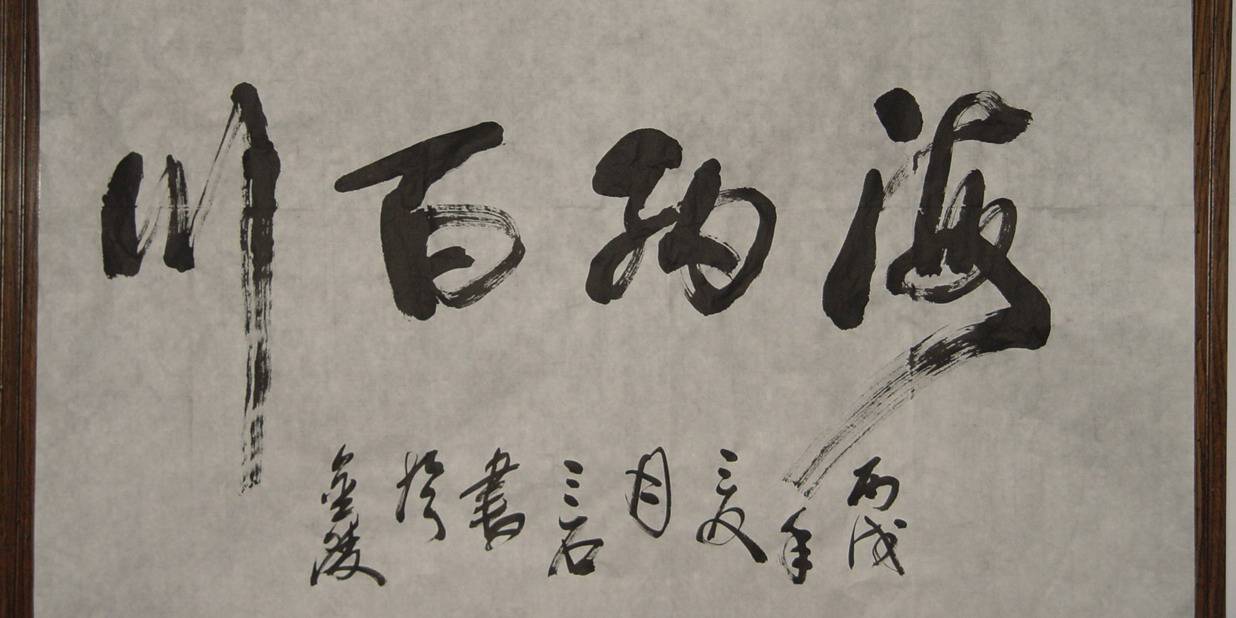 海纳百川
丙戌年夏月三石書於金陵